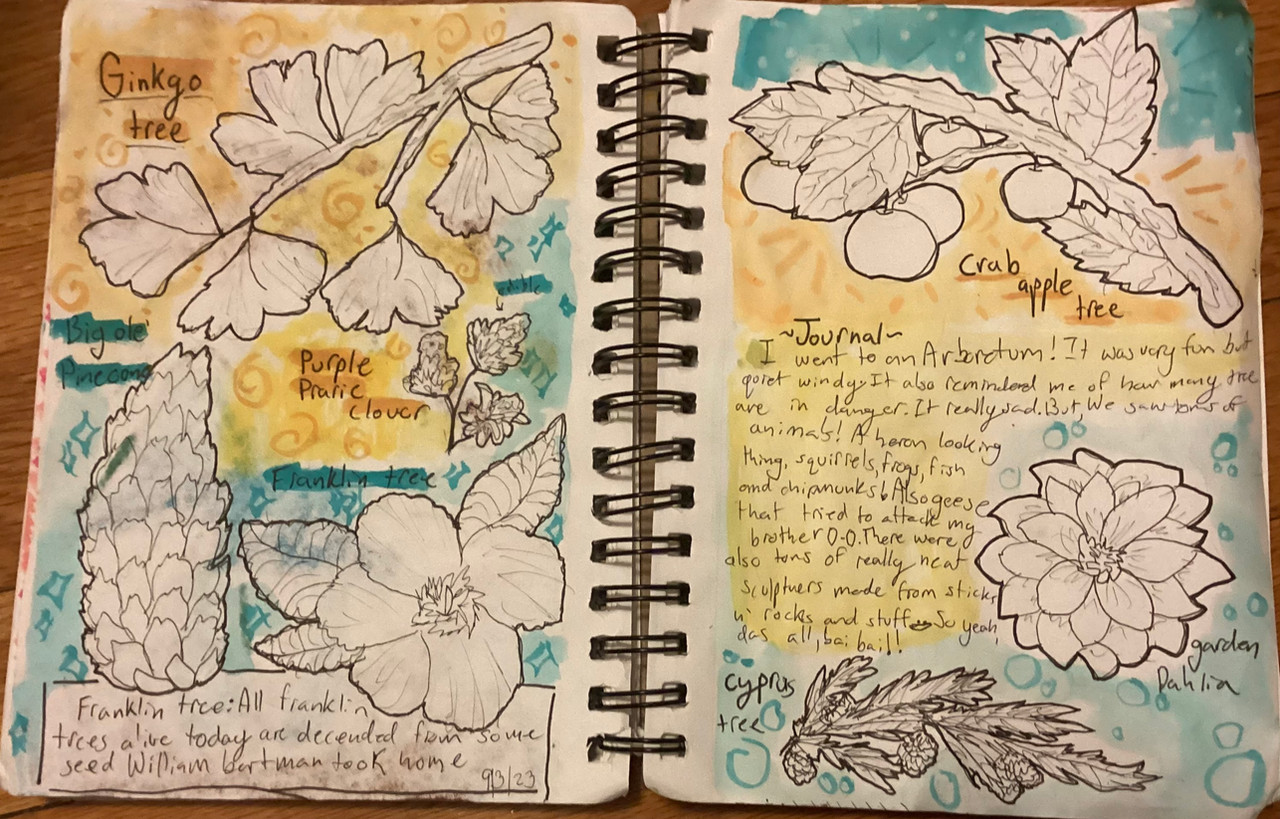 Ginkgo
tree
edible
Big ole'
Pinecone
Purple
Prarie
clover
Franklin tree
Franklin tree: All franklin
trees alive today are decended from some
seed William bartman took home
9/3/23
Crab
apple
tree
~Journal~
I went to an Arboretum! It was very fun but
quiet windy. It also reminded me of how many tree
are in danger. It really sad. But, We saw tons of
animals! A heron looking
thing, squirrels, frogs, fish
and chipmunks! Also geese
that tried to attack my
brother O-O. There were
also tons of really neat
sculptuers made from sticks
n' rocks and stuff So yeah
das all, bai bai!!
garden
Dahlia
cyprus
tree